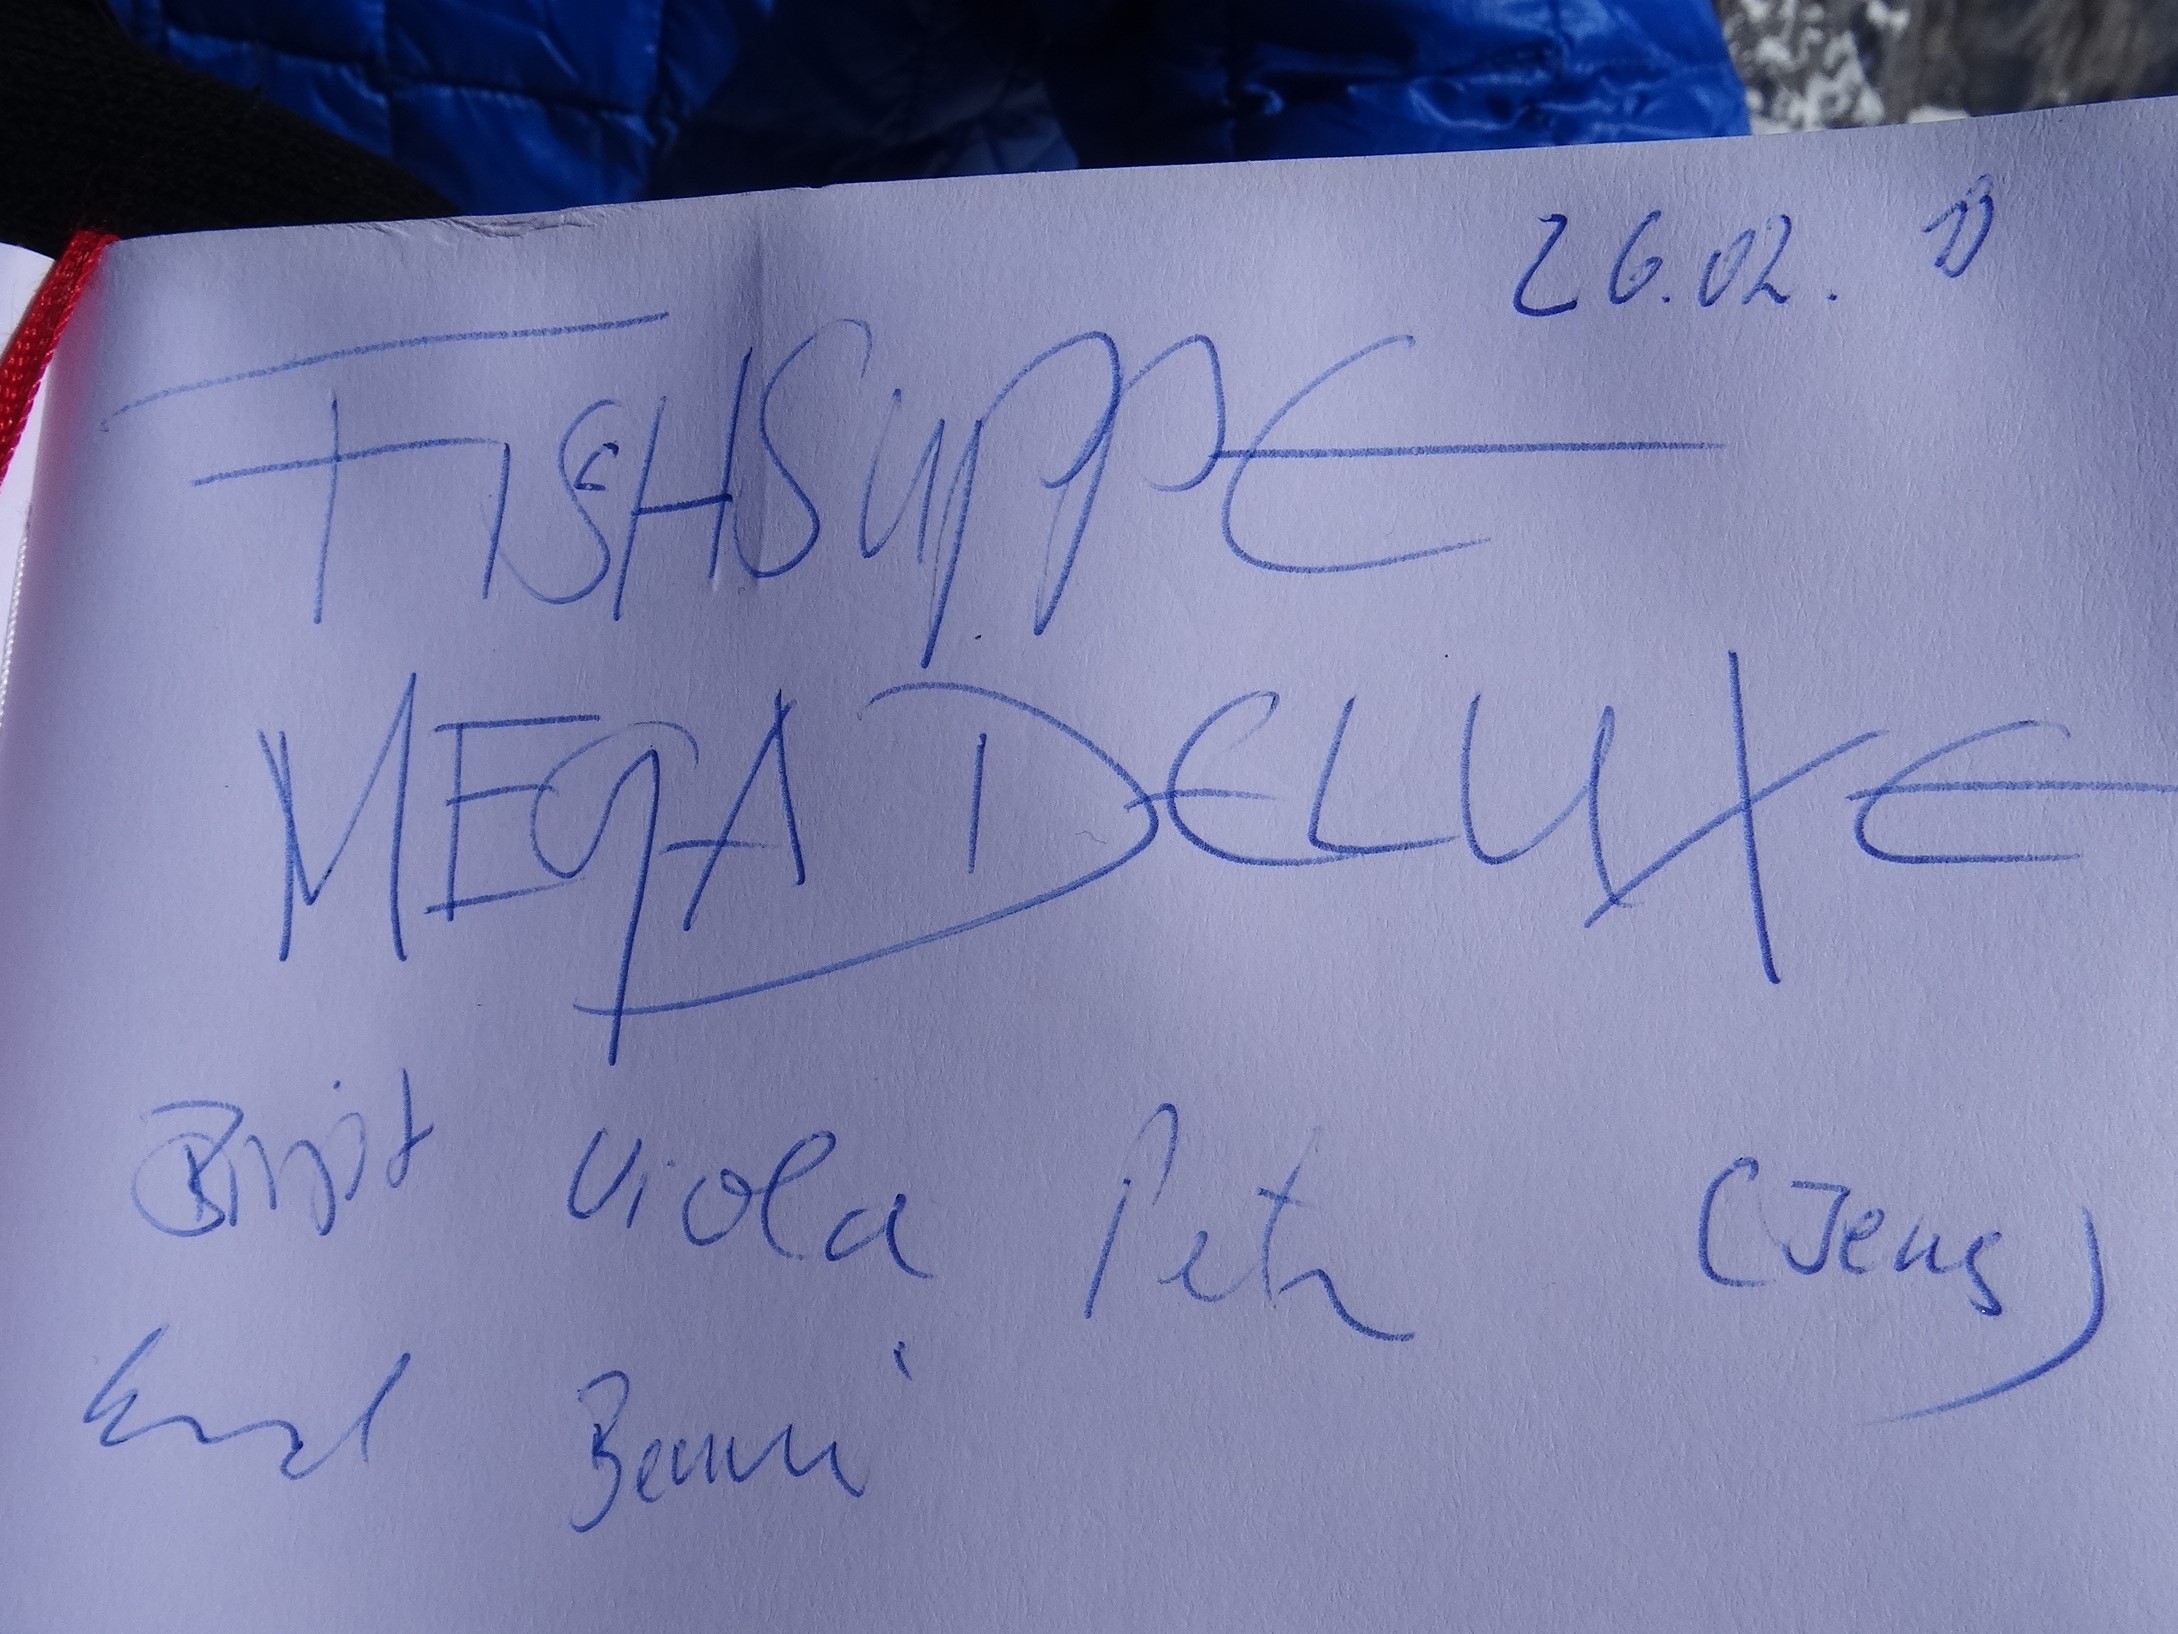 26.02.
FISCHSUPPE
MEGA DELUXE
Birgit Viola Petra (Jens)
Benni